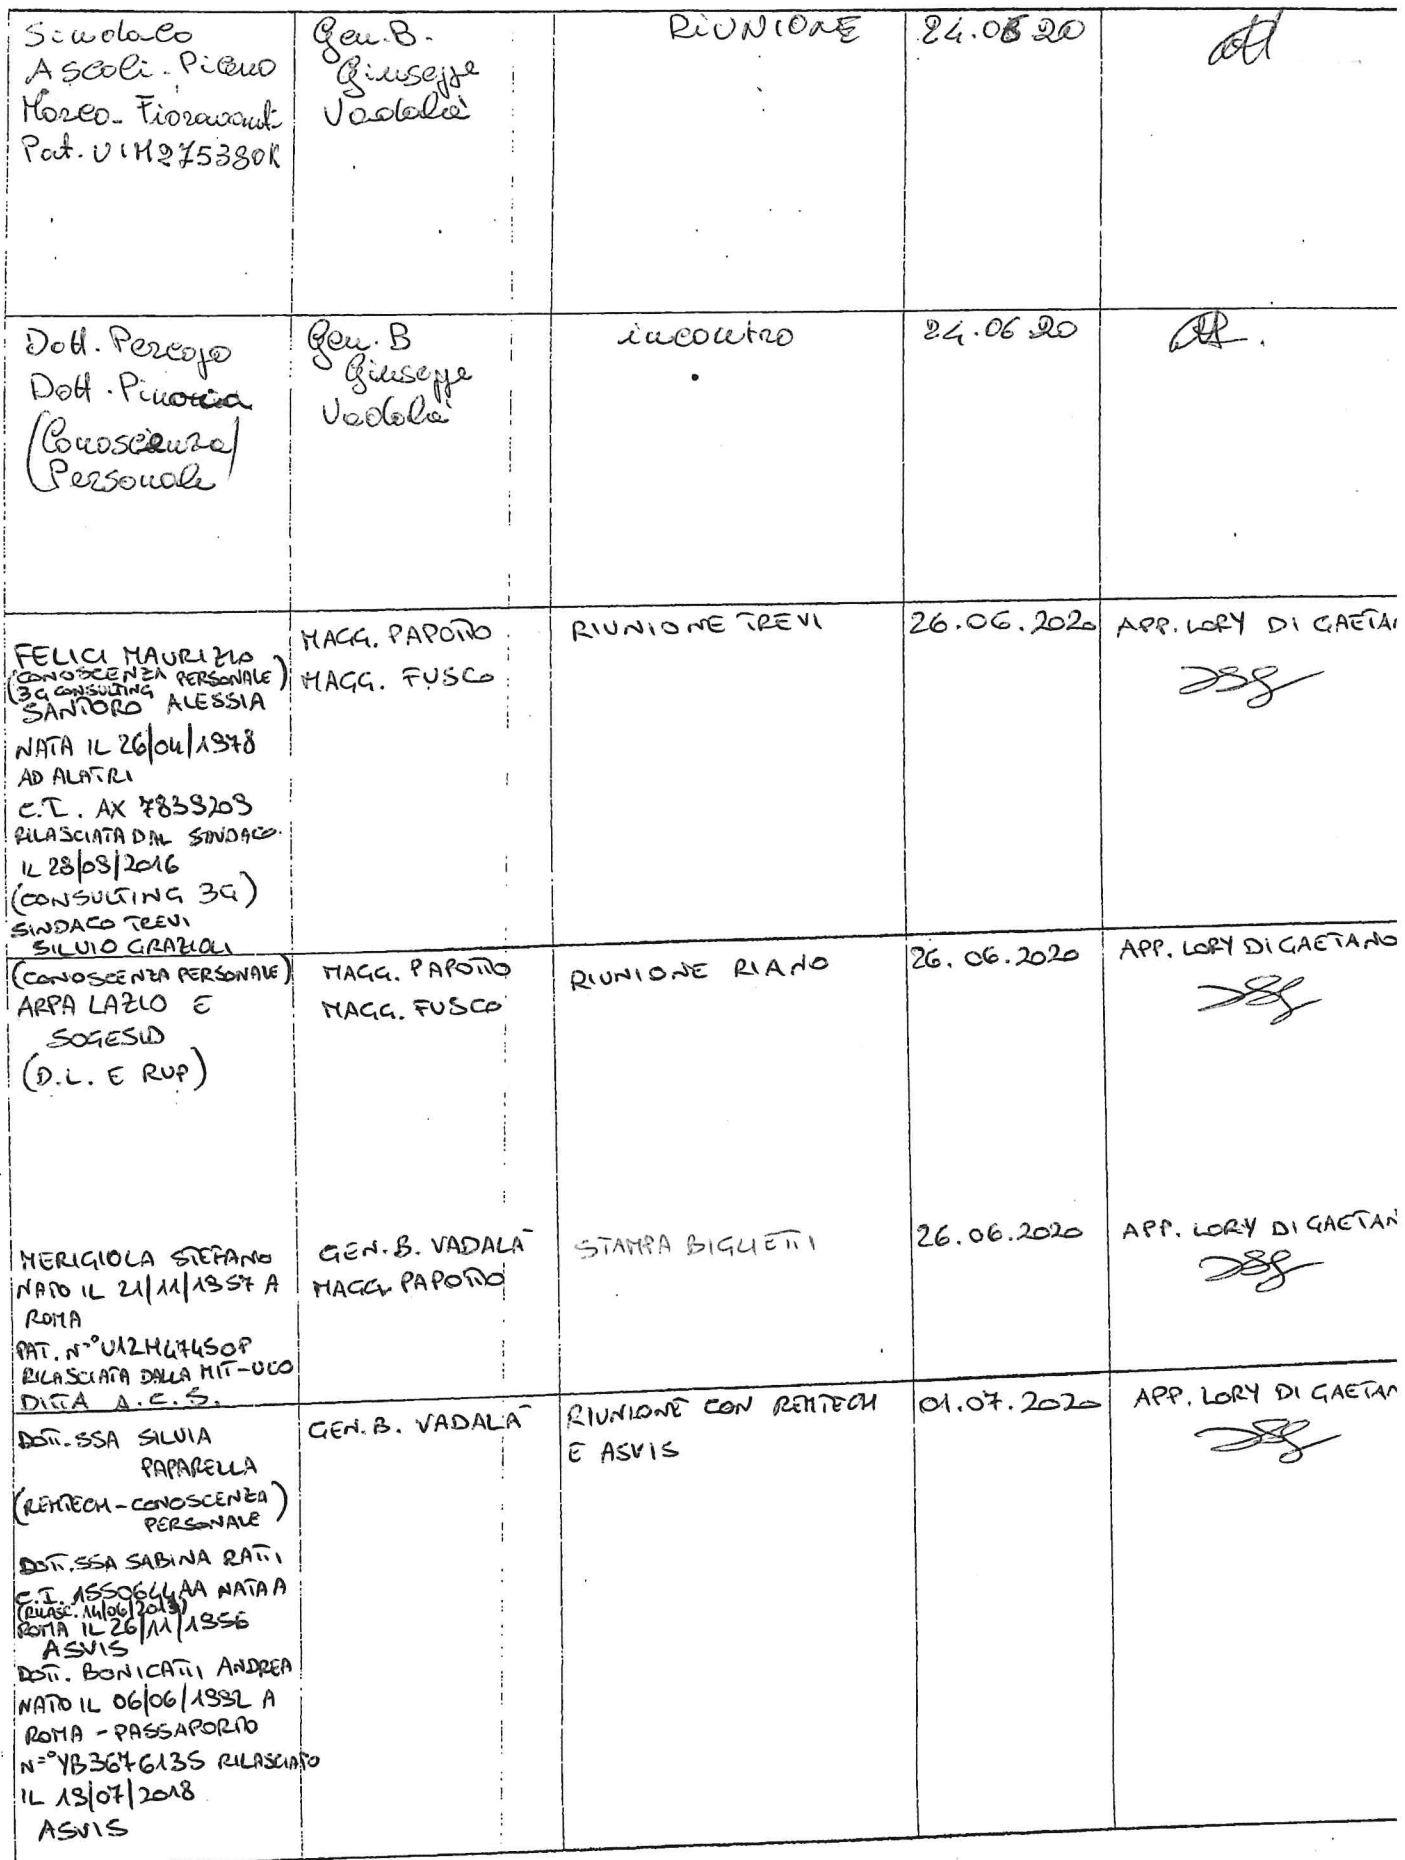 Sindaco
Ascoli-Piceno
Marco-Fioravanti
Pat. U1M275380K
Gen. B.
Giuseppe
Vadalà
RIUNIONE
24.06 20
Dott. Percojo
Dott.
(Conoscenza
Personale)
Gen. B
Giuseppe
Vadalà
incontro
24.06 20
FELICI MAURIZIO
(CONOSCENZA PERSONALE)
(3G CONSULTING
SANTORO ALESSIA
NATA IL 26/04/1978
AD ALATRI
C.I. AX 7839209
RILASCIATA DAL SINDACO
IL 28/09/2016
(CONSULTING 3G)
SINDACO TREVI
SILVIO GRAZIOLI
(CONOSCENZA PERSONALE)
MAGG. PAPOTTO
MAGG. FUSCO
RIUNIONE TREVI
26.06.2020
APP. LORY DI GAETA
ARPA LAZIO E
SOGESID
(D.L. E RUP)
MAGG. PAPOTTO
MAGG. FUSCO
RIUNIONE RIANO
26.06.2020
APP. LORY DI GAETANO
MERIGIOLA STEFANO
NATO IL 21/11/1957 A
ROMA
PAT. N° U12M47450P
RILASCIATA DALLA MIT-UCO
DITTA A.C.S.
GEN. B. VADALA'
MAGG. PAPOTTO
STAMPA BIGLIETTI
26.06.2020
APP. LORY DI GAETAN
DOTT.SSA SILVIA
PAPARELLA
(REMTECH-CONOSCENZA
PERSONALE)
DOTT.SSA SABINA RATTI
C.I. 1550644AA NATA A
(RILASC. 14/06/2013)
ROMA IL 26/11/1956
ASVIS
DOTT. BONICATTI ANDREA
NATO IL 06/06/1992 A
ROMA - PASSAPORTO
N=° YB3676135 RILASCIATO
IL 19/07/2018
ASVIS
GEN. B. VADALA'
RIUNIONE CON REMTECH
E ASVIS
01.07.2020
APP. LORY DI GAETAN